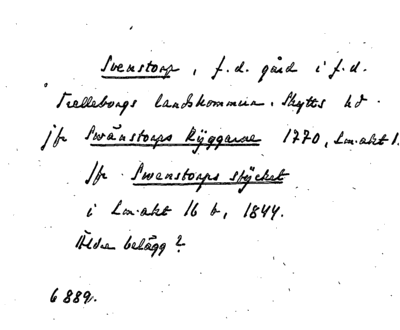 Svenstorp, f.d. gård i f.d.
Trelleborgs landskommun. Skytts hd.
jfr Swänstorps Ryggarne 1770, Lm.akt 1.
jfr Swenstorps stycket
i Lm.akt 16 b, 1844.
Äldre belägg?
6889.